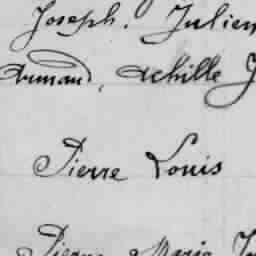 Joseph. Julien
Armand, Achille J
Pierre Louis
Pierre Marie J